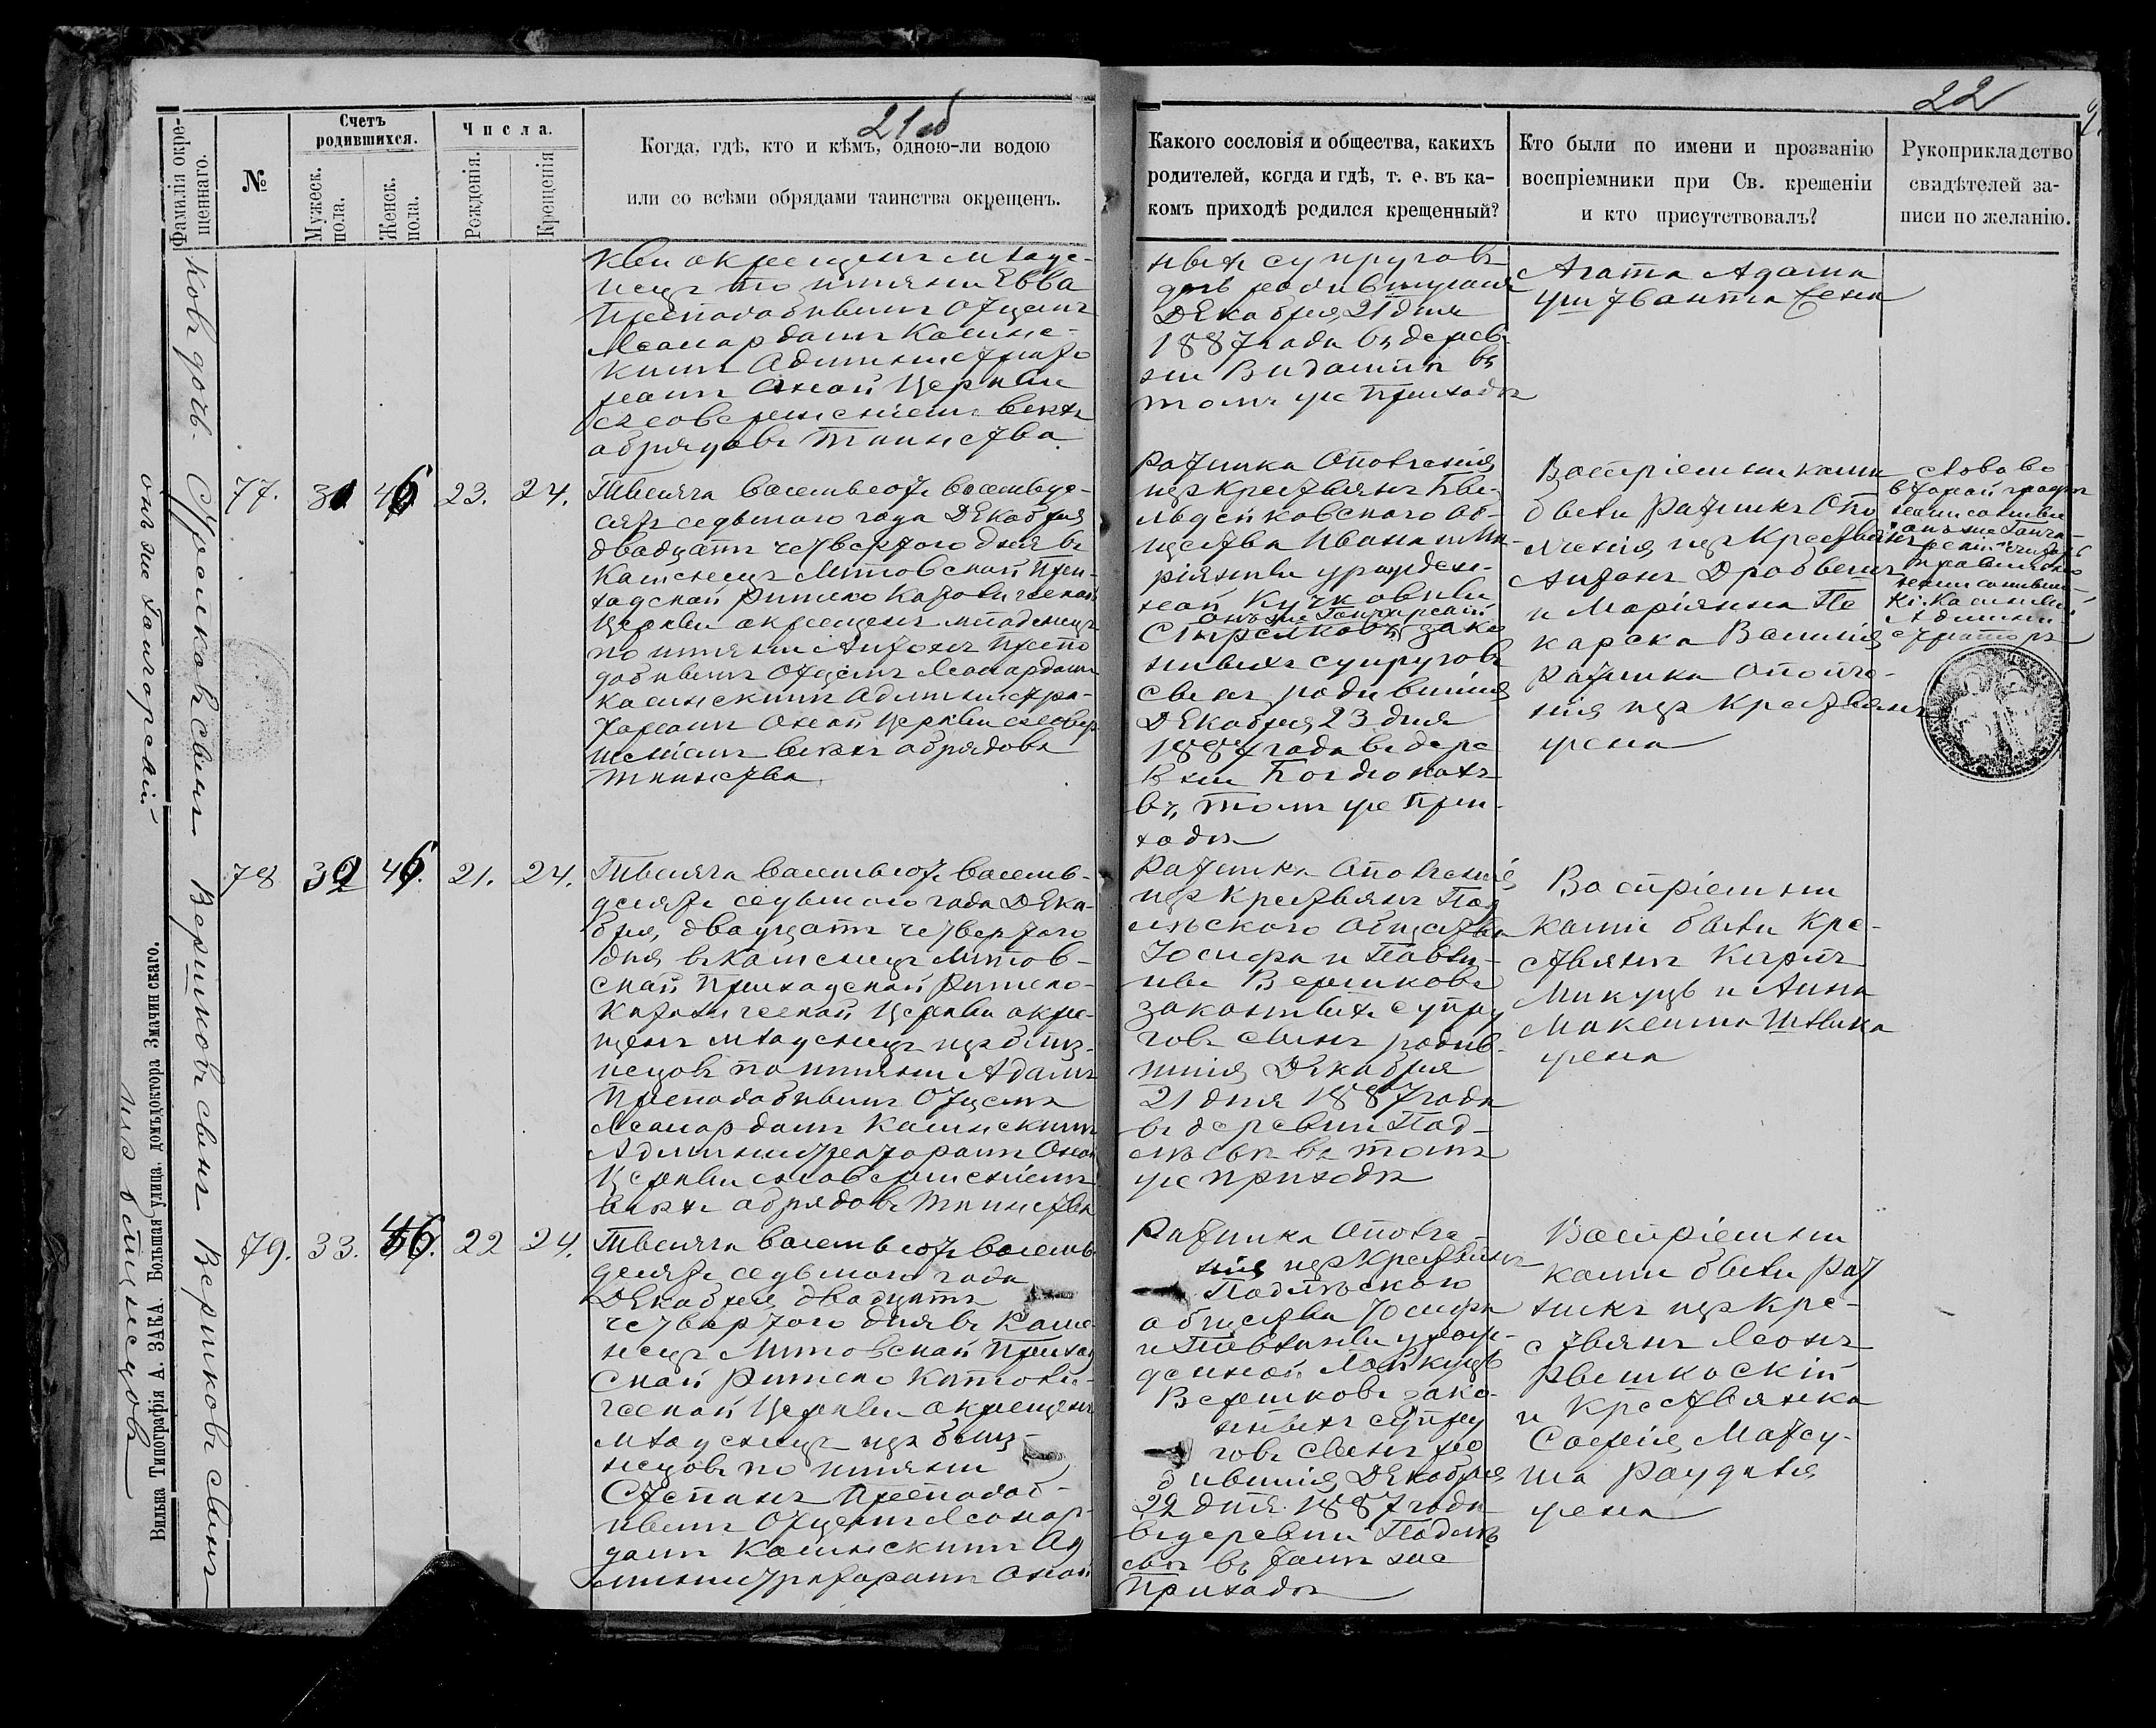 21об
22
Фамилія окре-
щеннаго.
№
Счетъ
родившихся.
Мужеск.
пола.
Женск.
пола.
Числа.
Рожденія.
Крещенія
Когда, гдѣ, кто и кѣмъ, одною-ли водою
или со всѣми обрядами таинства окрещенъ.
Какого сословія и общества, какихъ
родителей, когда и гдѣ, т. е. въ ка-
комъ приходѣ родился крещенный?
Кто были по имени и прозванію
воспріемники при Св. крещеніи
и кто присутствовалъ?
Рукоприкладство
свидѣтелей за-
писи по желанію.
ковъ дочь.
кви окрещенъ младе-
нецъ по имени Евва
Преподобнымъ Отцемъ
Леонардомъ Калинс-
кимъ Администрато
ромъ оной Церкви
съ совершеніемъ всѣхъ
обрядовъ таинства
ныхъ супруговъ
дочь родившуюся
Декабря 21 дня
1887 года въ дерев-
ни въ
томъ же приходѣ
Агата Адама
жена
Стрелковъ сынъ
онъ же Гончорскій
77.
31
46
23.
24.
Тысяча восемьсотъ восемьде-
сятъ седьмого года Декабря
двадцать четвертого дня въ
Каменецъ Литовской При-
ходской Римско Католической
Церкви окрещенъ младенецъ
по имени Антонъ Препо
добнымъ Отцемъ Леонардомъ
Калинскимъ Администра-
торомъ оной Церкви съ совер
шеніемъ всѣхъ обрядовъ
таинства.
Ратника Ополченія
изъ Крестьянъ
Об-
щества Ивана и Ма-
ріянны урожден-
ной
онъ же Гончарскій
Стрелковъ зако
нныхъ супруговъ
сынъ родившійся
Декабря 23 дня
1887 года въ дере
вни
въ томъ же при-
ходѣ
Воспріемниками
были Ратникъ Опо
лченія изъ Крестьянъ
Антонъ
и Маріянна Пе
карска
Ратника Ополче-
нія изъ Крестьянъ
жена
Слова во
второй графѣ
онъ же Гонча-
Админи
страторъ
Вершковъ сынъ
78
32
46.
21.
24.
Тысяча восемьсотъ восемь-
десятъ седьмого года Дека-
бря, двадцать четвертого
дня въ Каменецъ Литов-
ской Приходской Римско-
Католической Церкви окре-
щенъ младенецъ изъ близ-
нецовъ по имени Адамъ
Преподобнымъ Отцемъ
Леонардомъ Калинскимъ
Администраторомъ оной
Церкви съ совершеніемъ
всѣхъ обрядовъ таинства
Ратника Ополченія
изъ Крестьянъ Под
лѣского общества
Іосифа и Павли-
ны Вершковъ
законныхъ супру
говъ сынъ родив-
шійся Декабря
21 дня 1887 года
въ деревни Под-
лѣсьѣ въ томъ
же приходѣ
Воспріемни
ками были Кре-
стьянъ
Микуць и Анна
Максима
жена
Вершковъ сынъ
изъ близнецовъ
79.
33.
46.
22
24.
Тысяча восемьсотъ восемь
десятъ седьмого года
Декабря двадцать
четвертого дня въ Каме
нецъ Литовской Приход
ской Римско Католи-
ческой Церкви окрещенъ
младенецъ изъ близ-
нецовъ по имени
Степанъ Преподоб-
нымъ Отцемъ Леонар-
домъ Калинскимъ Ад
министраторомъ оной
Ратника Ополче-
нія изъ Крестьянъ
Подлѣского
общества Іосифа
и Павлины урож-
денной Микуць
Вершковъ зако-
нныхъ супру
говъ сынъ ро
дившійся Декабря
22 дня 1887 года
въ деревни Подлѣ
сьѣ въ томъ же
приходѣ
Воспріемни
ками были Рат
никъ изъ Кре-
стьянъ Леонъ
и Крестьянка
Софія
жена
Вильна Типографія А. ЗАКА. Большая улица, домъ доктора Змачинскаго.